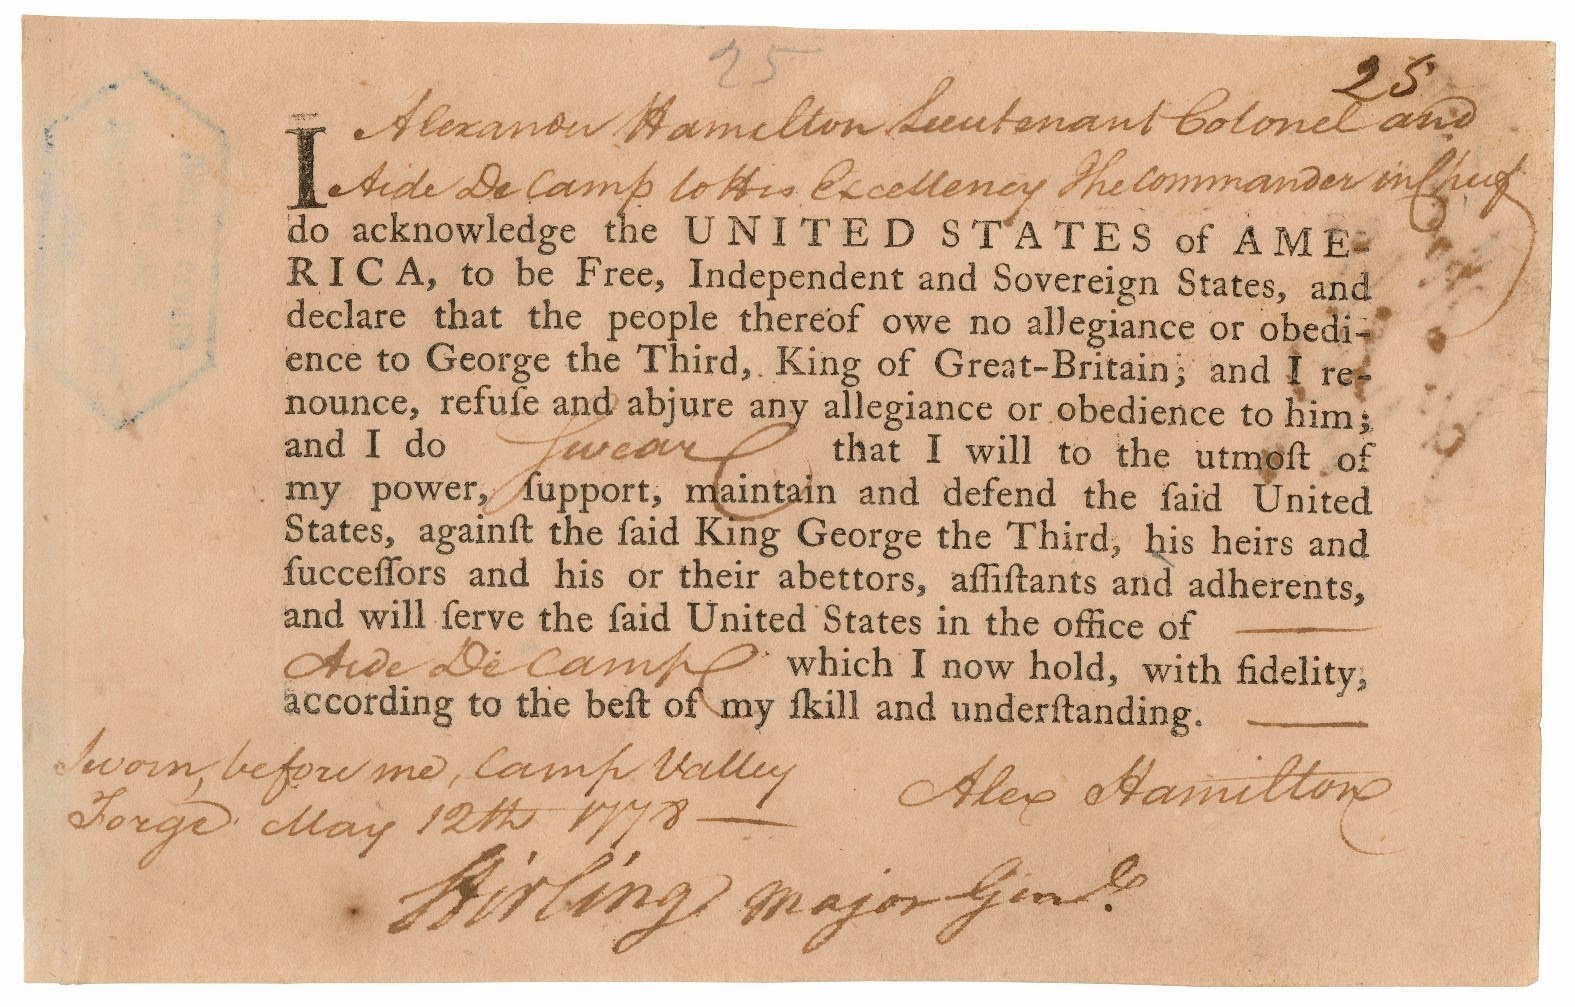 25
25
I Alexander Hamilton Lieutenant Colonel and
Aide De Camp to His Excellency The Commander in Chief
do acknowledge the UNITED STATES of AME-
RICA, to be Free, Independent and Sovereign States, and
declare that the people thereof owe no allegiance or obedi-
ence to George the Third, King of Great-Britain; and I re-
nounce, refuſe and abjure any allegiance or obedience to him;
and I do Swear that I will to the utmoſt of
my power, ſupport, maintain and defend the ſaid United
States, againſt the ſaid King George the Third, his heirs and
ſucceſſors and his or their abettors, aſſiſtants and adherents,
and will ſerve the ſaid United States in the office of —
Aide De Camp which I now hold, with fidelity,
according to the beſt of my ſkill and underſtanding. —
Sworn, before me, Camp Valley
Forge May 12th 1778 —
Alex Hamilton
Stirling, Major Genl.